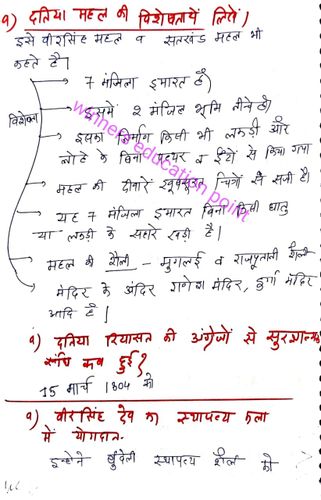 Q) दतिया महल की विशेषतायें लिखें।
इसे वीरसिंह महल व सतखंड महल भी
कहते है।
7 मंजिला इमारत है।
इसमें 2 मंजिल भूमि नीचे है।
विशेषता
इसका निर्माण किसी भी लकड़ी और
लोहे के बिना पत्थर व ईंटो से किया गया
महल की दीवारें खूबसूरत चित्रों से सजी है।
यह 7 मंजिला इमारत बिना किसी धातु
या लकड़ी के सहारे खड़ी है।
महल की शैली - मुगलई व राजपूताली शैली
मंदिर के अंदर गणेश मंदिर, दुर्गा मंदिर
आदि है।
women education point
Q) दतिया रियासत की अंग्रेजों से सुरक्षात्मक
संधि कब हुई?
15 मार्च 1804 को
Q) वीरसिंह देव का स्थापत्य कला
में योगदान-
इन्होने बुंदेली स्थापत्य शैली को